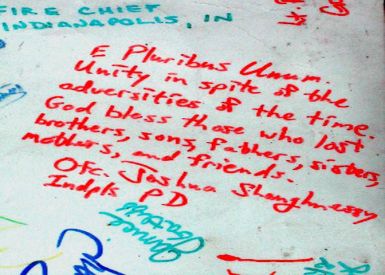 FIRE CHIEF
INDIANAPOLIS, IN
E Pluribus Unum.
Unity in spite of the
adversities of the time.
God bless those who lost
brothers, sons, fathers, sisters,
mothers, and friends.
Ofc. Joshua Shaughnessy
Indpls PD